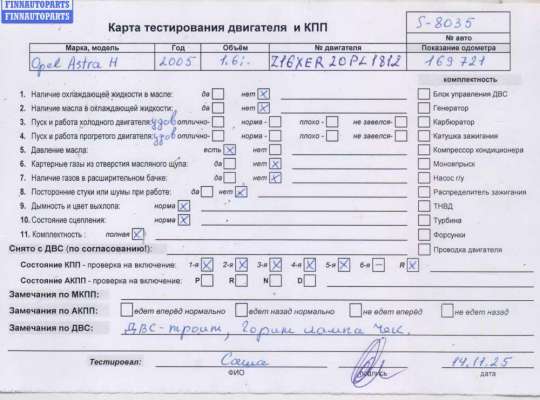 FINNAUTOPARTS
FINNAUTOPARTS
Карта тестирования двигателя и КПП
S-8035
№ авто
Марка, модель Год Объём № двигателя Показание одометра
Opel Astra H 2005 1.6i. Z16XER 20PL1812 169721
комплектность
1. Наличие охлаждающей жидкости в масле: да нет
2. Наличие масла в охлаждающей жидкости: да нет
3. Пуск и работа холодного двигателя: удов отлично- норма - плохо - не завелся-
4. Пуск и работа прогретого двигателя: удов отлично- норма - плохо - не завелся-
5. Давление масла: есть нет
6. Картерные газы из отверстия масляного щупа: да нет
7. Наличие газов в расширительном бачке: да нет
8. Посторонние стуки или шумы при работе: да нет
9. Дымность и цвет выхлопа: норма
10. Состояние сцепления: норма
11. Комплектность : полная
Блок управления ДВС
Генератор
Карбюратор
Катушка зажигания
Компрессор кондиционера
Моновпрыск
Насос г/у
Распределитель зажигания
ТНВД
Турбина
Форсунки
Проводка двигателя
Снято с ДВС (по согласованию!):
Состояние КПП - проверка на включение: 1-я 2-я 3-я 4-я 5-я 6-я R
Состояние АКПП - проверка на включение: P R N D
Замечания по МКПП:
Замечания по АКПП: едет вперёд нормально едет назад нормально не едет вперёд не едет назад
Замечания по ДВС: ДВС-троит, Горит лампа Чек.
Тестировал: Саша 14.11.25
ФИО подпись дата